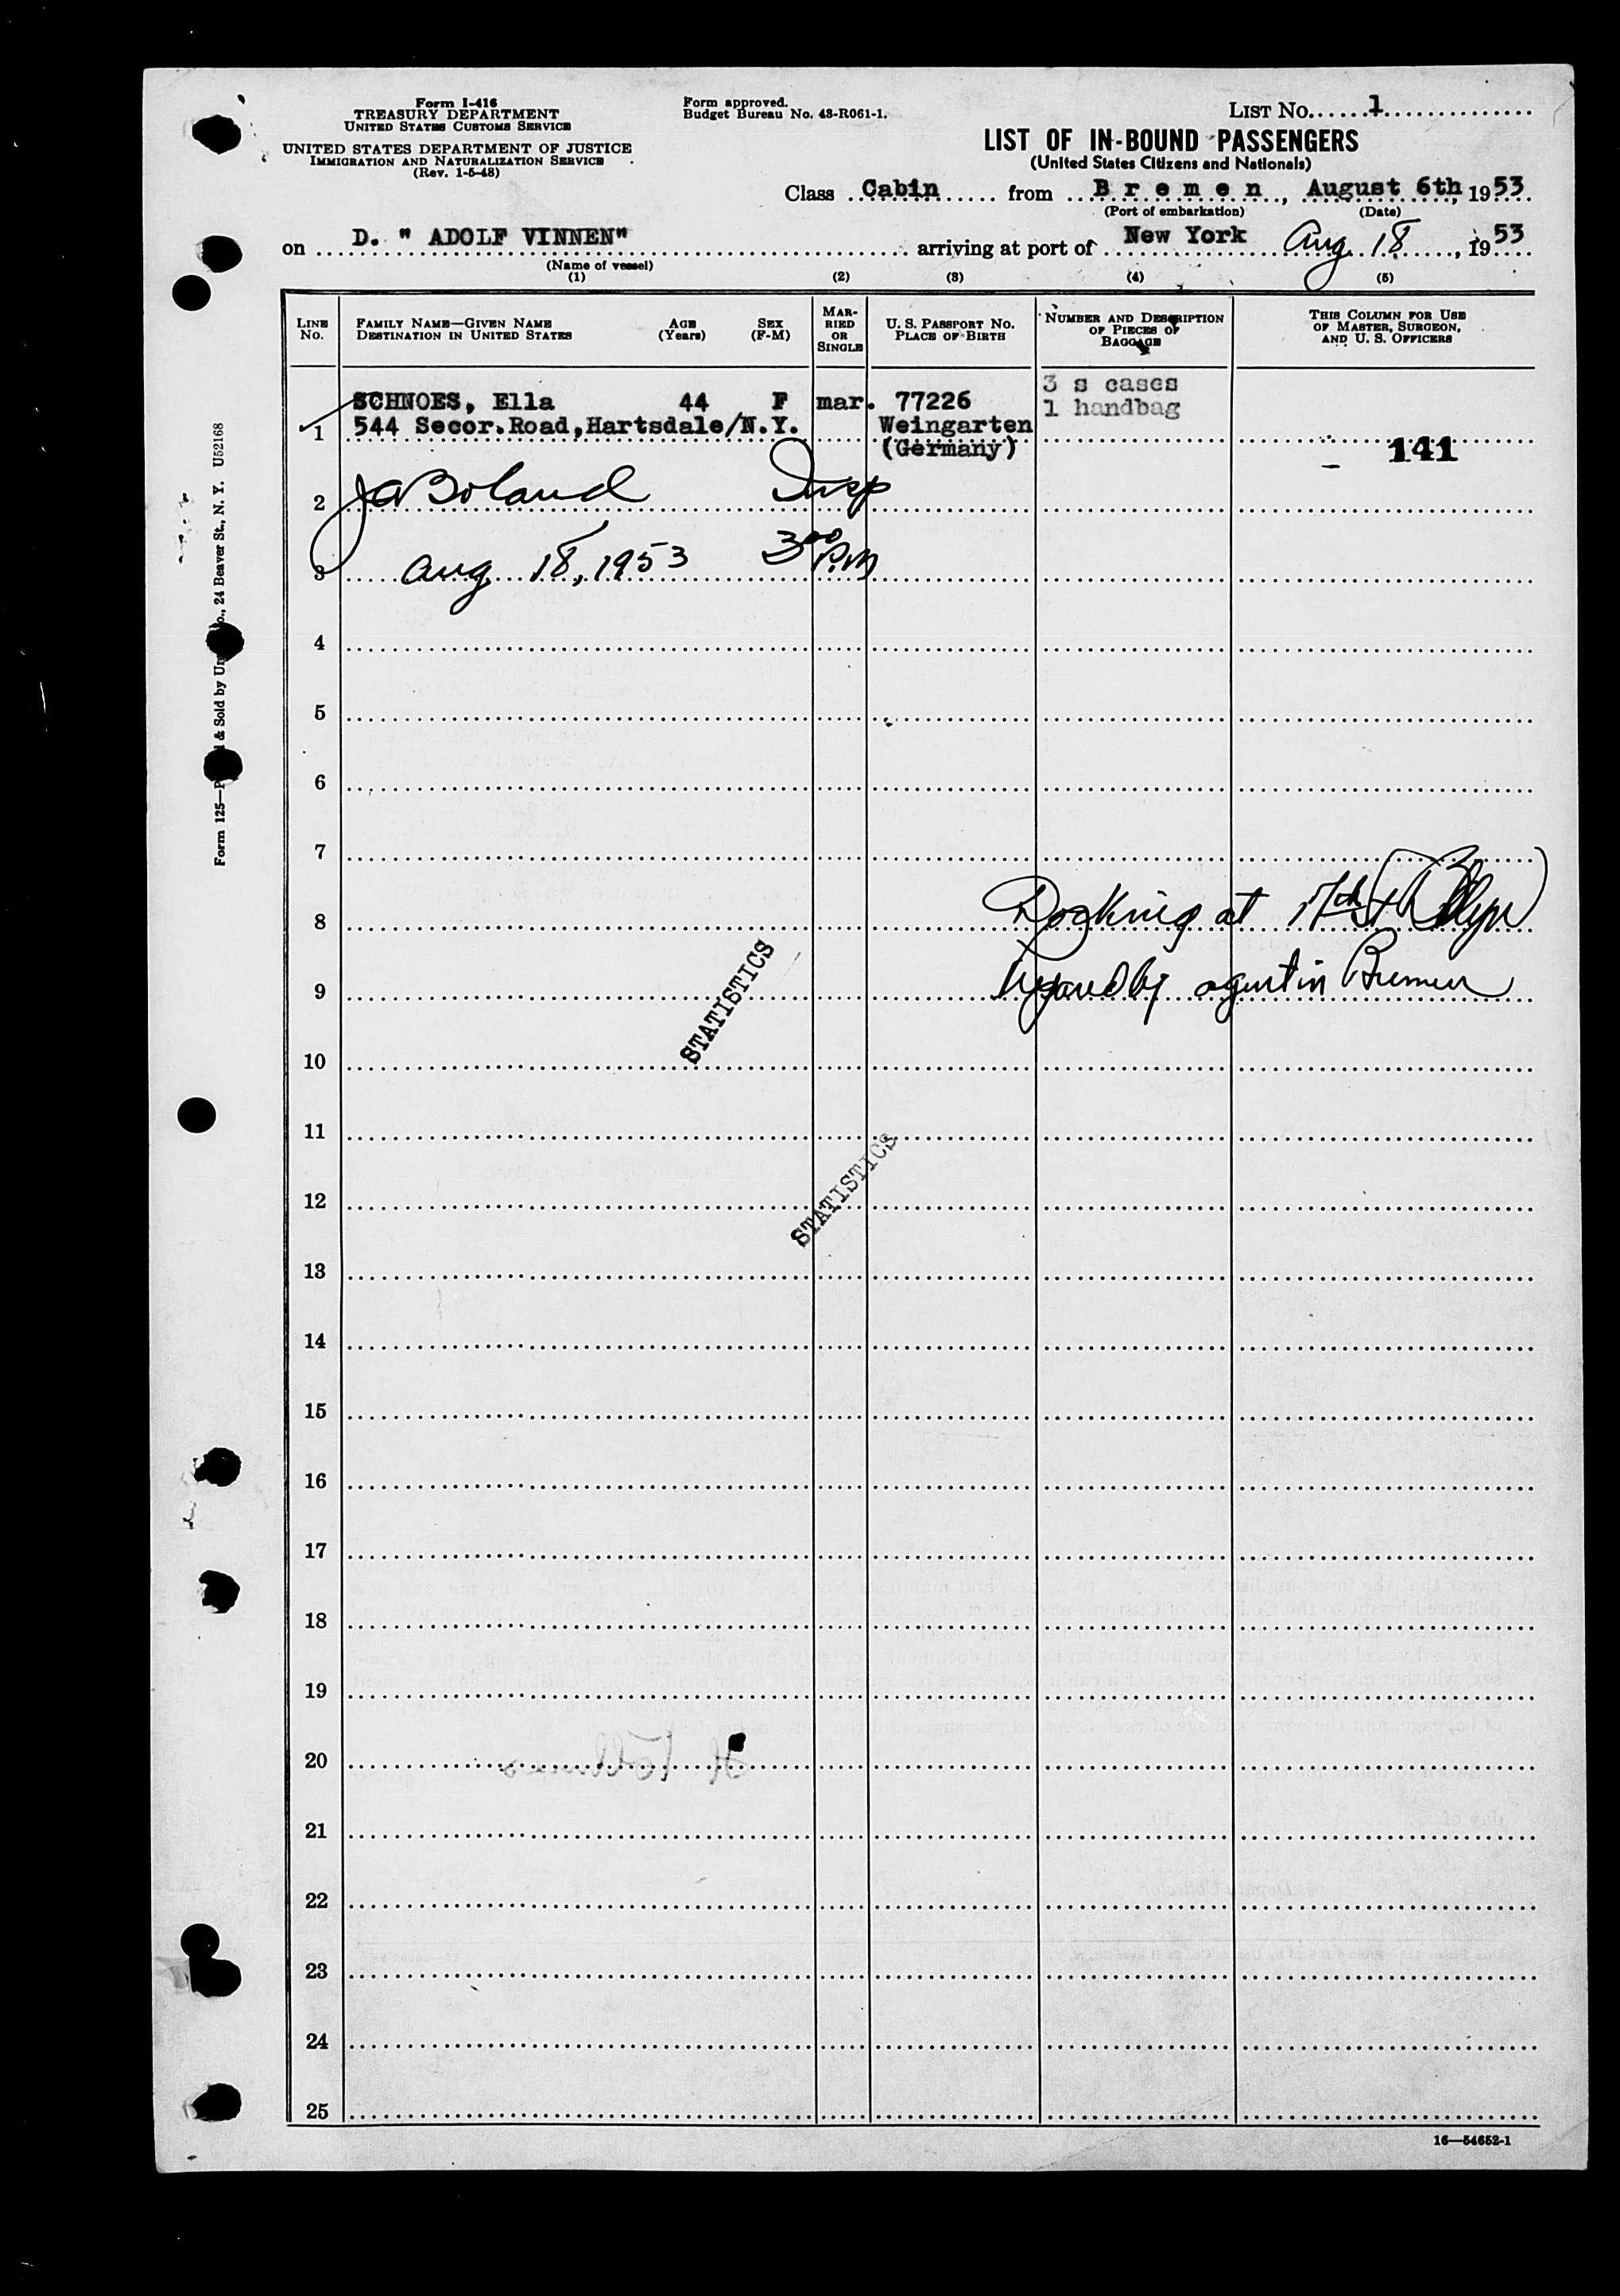 Form I-416
TREASURY DEPARTMENT
UNITED STATES CUSTOMS SERVICE
UNITED STATES DEPARTMENT OF JUSTICE
IMMIGRATION AND NATURALIZATION SERVICE
(Rev. 1-5-48)
Form approved.
Budget Bureau No. 43-R061-1.
LIST No. 1
LIST OF IN-BOUND PASSENGERS
(United States Citizens and Nationals)
Class Cabin from Bremen, August 6th, 1953
(Port of embarkation) (Date)
on D. " ADOLF VINNEN" arriving at port of New York Aug. 18, 1953
(Name of vessel)
(1) (2) (3) (4) (5)
LINE No.
FAMILY NAME—GIVEN NAME
DESTINATION IN UNITED STATES
AGE (Years)
SEX (F-M)
MARRIED OR SINGLE
U. S. PASSPORT No.
PLACE OF BIRTH
NUMBER AND DESCRIPTION OF PIECES OF BAGGAGE
THIS COLUMN FOR USE OF MASTER, SURGEON, AND U. S. OFFICERS
SCHNOES, Ella 44 F mar. 77226 3 s cases
1 544 Secor.Road,Hartsdale/N.Y. Weingarten 1 handbag
(Germany) 141
2 JA Boland Insp
3 Aug 18, 1953 3 00 P.M
4
5
6
7
8 Docking at 17th St
9 by agent in Bremen
STATISTICS
10
11
STATISTICS
12
13
14
15
16
17
18
19
20
21
22
23
24
25
16—54652-1
Form 125— & Sold by , 24 Beaver St., N. Y. U52168